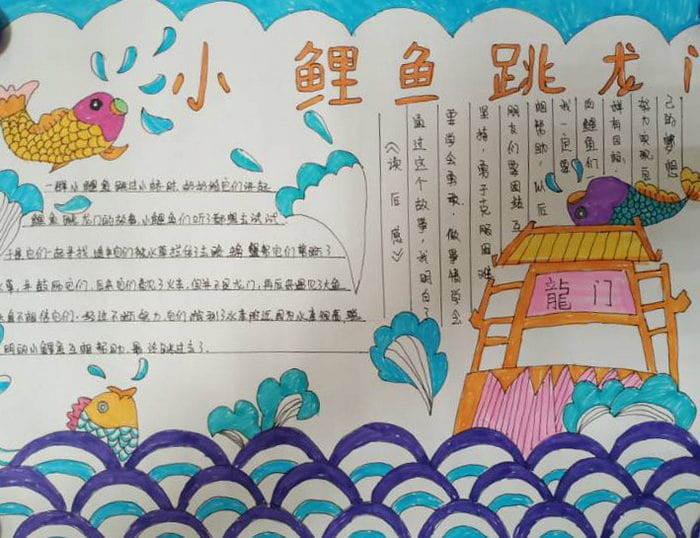 小鲤鱼跳龙门
一群小鲤鱼跳过小桥时,奶奶给它们讲起
鲤鱼跳龙门的故事,小鲤鱼们听了都想去试试
于是它们一起寻找,途中它们被水草拦住了去路,螃蟹帮它们剪断了
水草,并鼓励它们,后来它们看见了火车,但并不是龙门,再后来遇见了大鱼
鱼不相信它们,经过不断努力,它们找到了水库附近,因为水库很高,聪
明的小鲤鱼互相帮助,最终跳过去了.
《读后感》
通过这个故事,我明白了
要学会勇敢,做事情学会
坚持,勇于克服困难
朋友们要团结互
相帮助,以后
我一定要
向鲤鱼们一
样有目标,
努力实现自
己的梦想
龍门